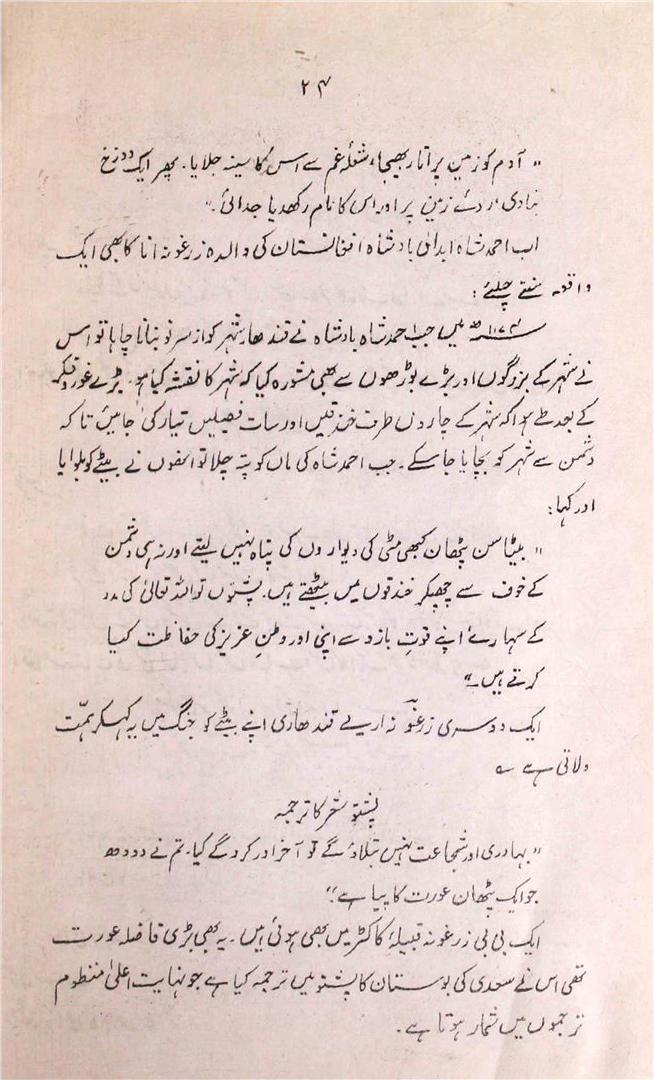 ۲۴
" آدم کو زمین پر اتار بھیجا، شعلۂ غم سے اس کا سینہ جلایا۔ پھر ایک دوزخ
بنا دی روئے زمین پر اور اس کا نام رکھدیا جدائی۔"
اب احمد شاہ ابدالی بادشاہ افغانستان کی والدہ زرغونہ انا کا بھی ایک
واقعہ سنتے چلئے :
۱۱۷۴ھ میں جب احمد شاہ بادشاہ نے قندھار شہر کو از سرِ نو بنانا چاہا تو اس
نے شہر کے بزرگوں اور بڑے بوڑھوں سے بھی مشورہ کیا کہ شہر کا نقشہ کیا ہو۔ بڑے غور و فکر
کے بعد طے ہوا کہ شہر کے چاروں طرف خندقیں اور سات فصیلیں تیار کی جائیں تاکہ
دشمن سے شہر کو بچایا جا سکے۔ جب احمد شاہ کی ماں کو پتہ چلا تو انھوں نے بیٹے کو بلوایا
اور کہا :
" بیٹا سن پٹھان کبھی مٹی کی دیواروں کی پناہ نہیں لیتے اور نہ ہی دشمن
کے خوف سے چھپکر خندقوں میں بیٹھتے ہیں۔ پشتون تو اللہ تعالیٰ کی مدد
کے سہارے اپنے قوت بازو سے اپنی اور وطنِ عزیز کی حفاظت کیا
کرتے ہیں۔"
ایک دوسری زرغونہ قندھاری اپنے بیٹے کو جنگ میں یہ کہکر ہمّت
دلاتی ہے ؎
پشتو شعر کا ترجمہ
" بہادری اور شجاعت نہیں بتلاؤ گے تو آخر اور کرو گے کیا۔ تم نے دودھ
جو ایک پٹھان عورت کا پیا ہے"
ایک بی بی زرغونہ قبیلۂ کاکڑ میں بھی ہوئی ہیں۔ یہ بھی بڑی فاضلہ عورت
تھی اس نے سعدی کی بوستان کا پشتو میں ترجمہ کیا ہے جو نہایت اعلیٰ منظوم
ترجموں میں شمار ہوتا ہے۔